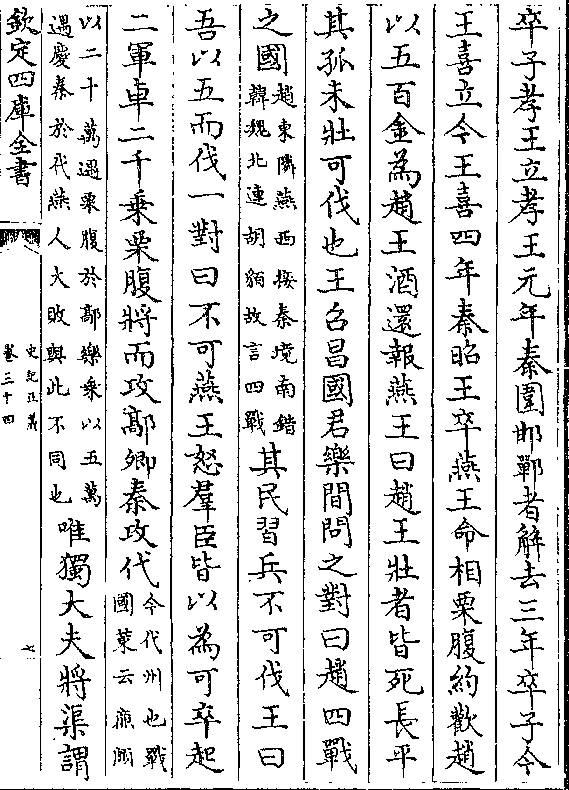 卒子孝王立孝王元年秦圍邯鄲者解去三年卒子今
王喜立今王喜四年秦昭王卒燕王命相栗腹約歡趙
以五百金為趙王酒還報燕王曰趙王壯者皆死長平
其孤未壯可伐也王召昌國君樂間問之對曰趙四戰
之國趙東隣燕西接秦境南錯韓魏北連胡貊故言四戰其民習兵不可伐王曰
吾以五而伐一對曰不可燕王怒羣臣皆以為可卒起
二軍車二千乗栗腹將而攻鄗卿秦攻代今代州也戰國䇿云廉頗
以二十萬遇栗腹於鄗樂乗以五萬遇慶秦於代燕人大敗與此不同也唯獨大夫將渠謂
欽定四庫全書
史記正義
卷三十四
七